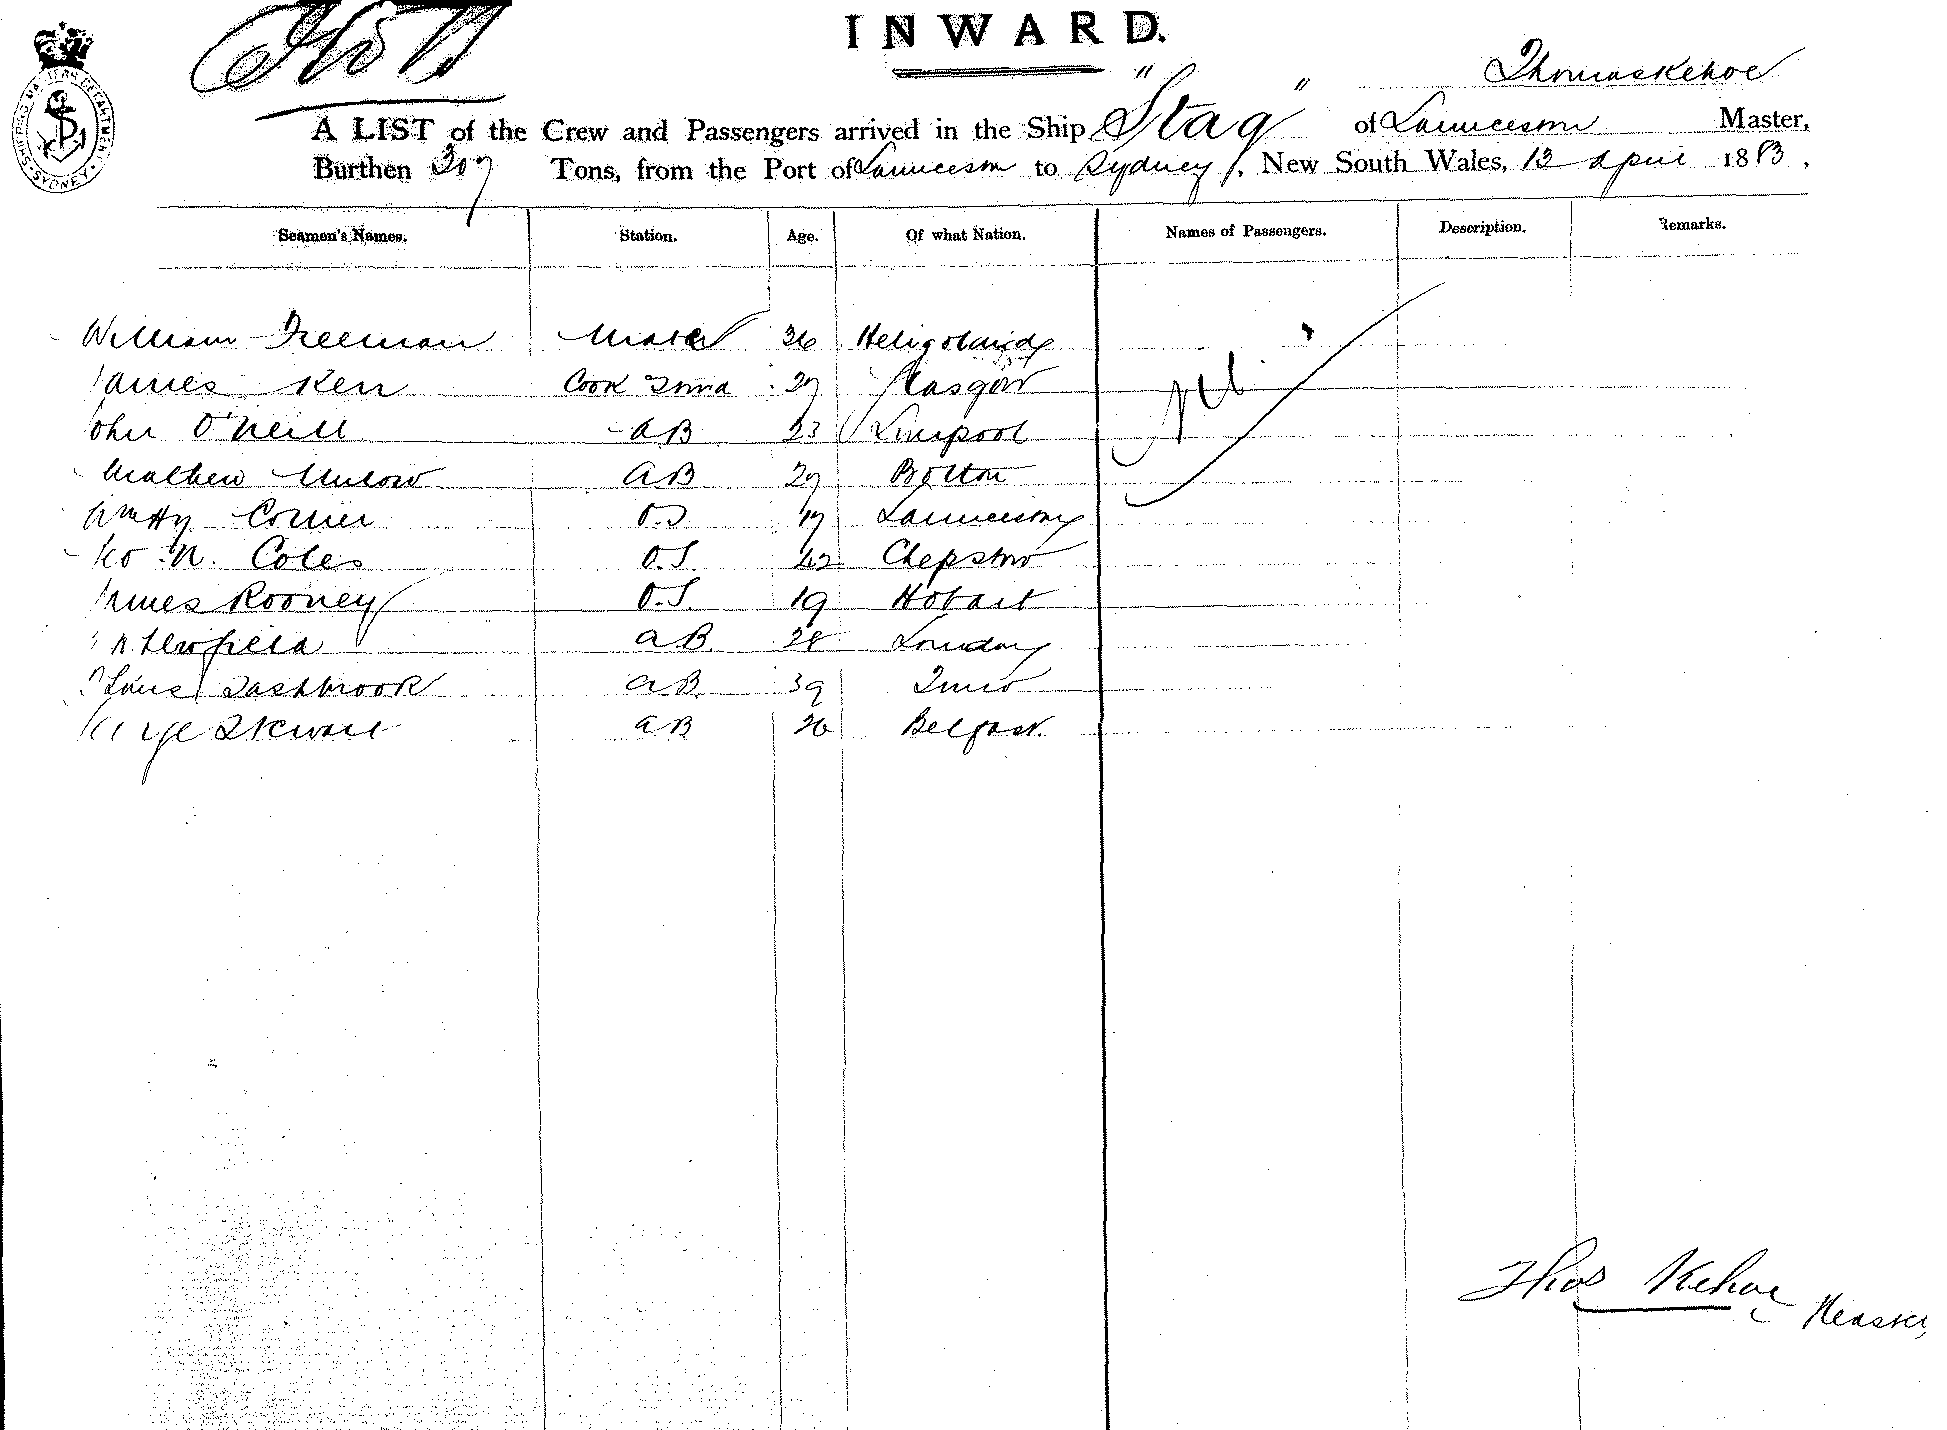 INWARD.
SHIPPING MASTERS DEPARTMENT SYDNEY
Thomas Kehoe
A LIST of the Crew and Passengers arrived in the Ship "Stag" of Launceston Master,
Burthen 209 Tons, from the Port of Launceston to Sydney, New South Wales, 13 April 1883.
Seamen's Names. Station. Age. Of what Nation. Names of Passengers. Description. Remarks.
William Freeman Mate 36 Heligoland Nil
James Kerr Cook 29 Glasgow
John O'Neill AB 23 Liverpool
Mathew AB 29 Bolton
Wm Hy O.S 19 Launceston
Coles O.S. 42 Chepstow
James Rooney O.S. 19 Hobart
AB. 28 London
Dashbrook AB. 39 Truro
George Stewart AB 26 Belfast.
Thos Kehoe Master